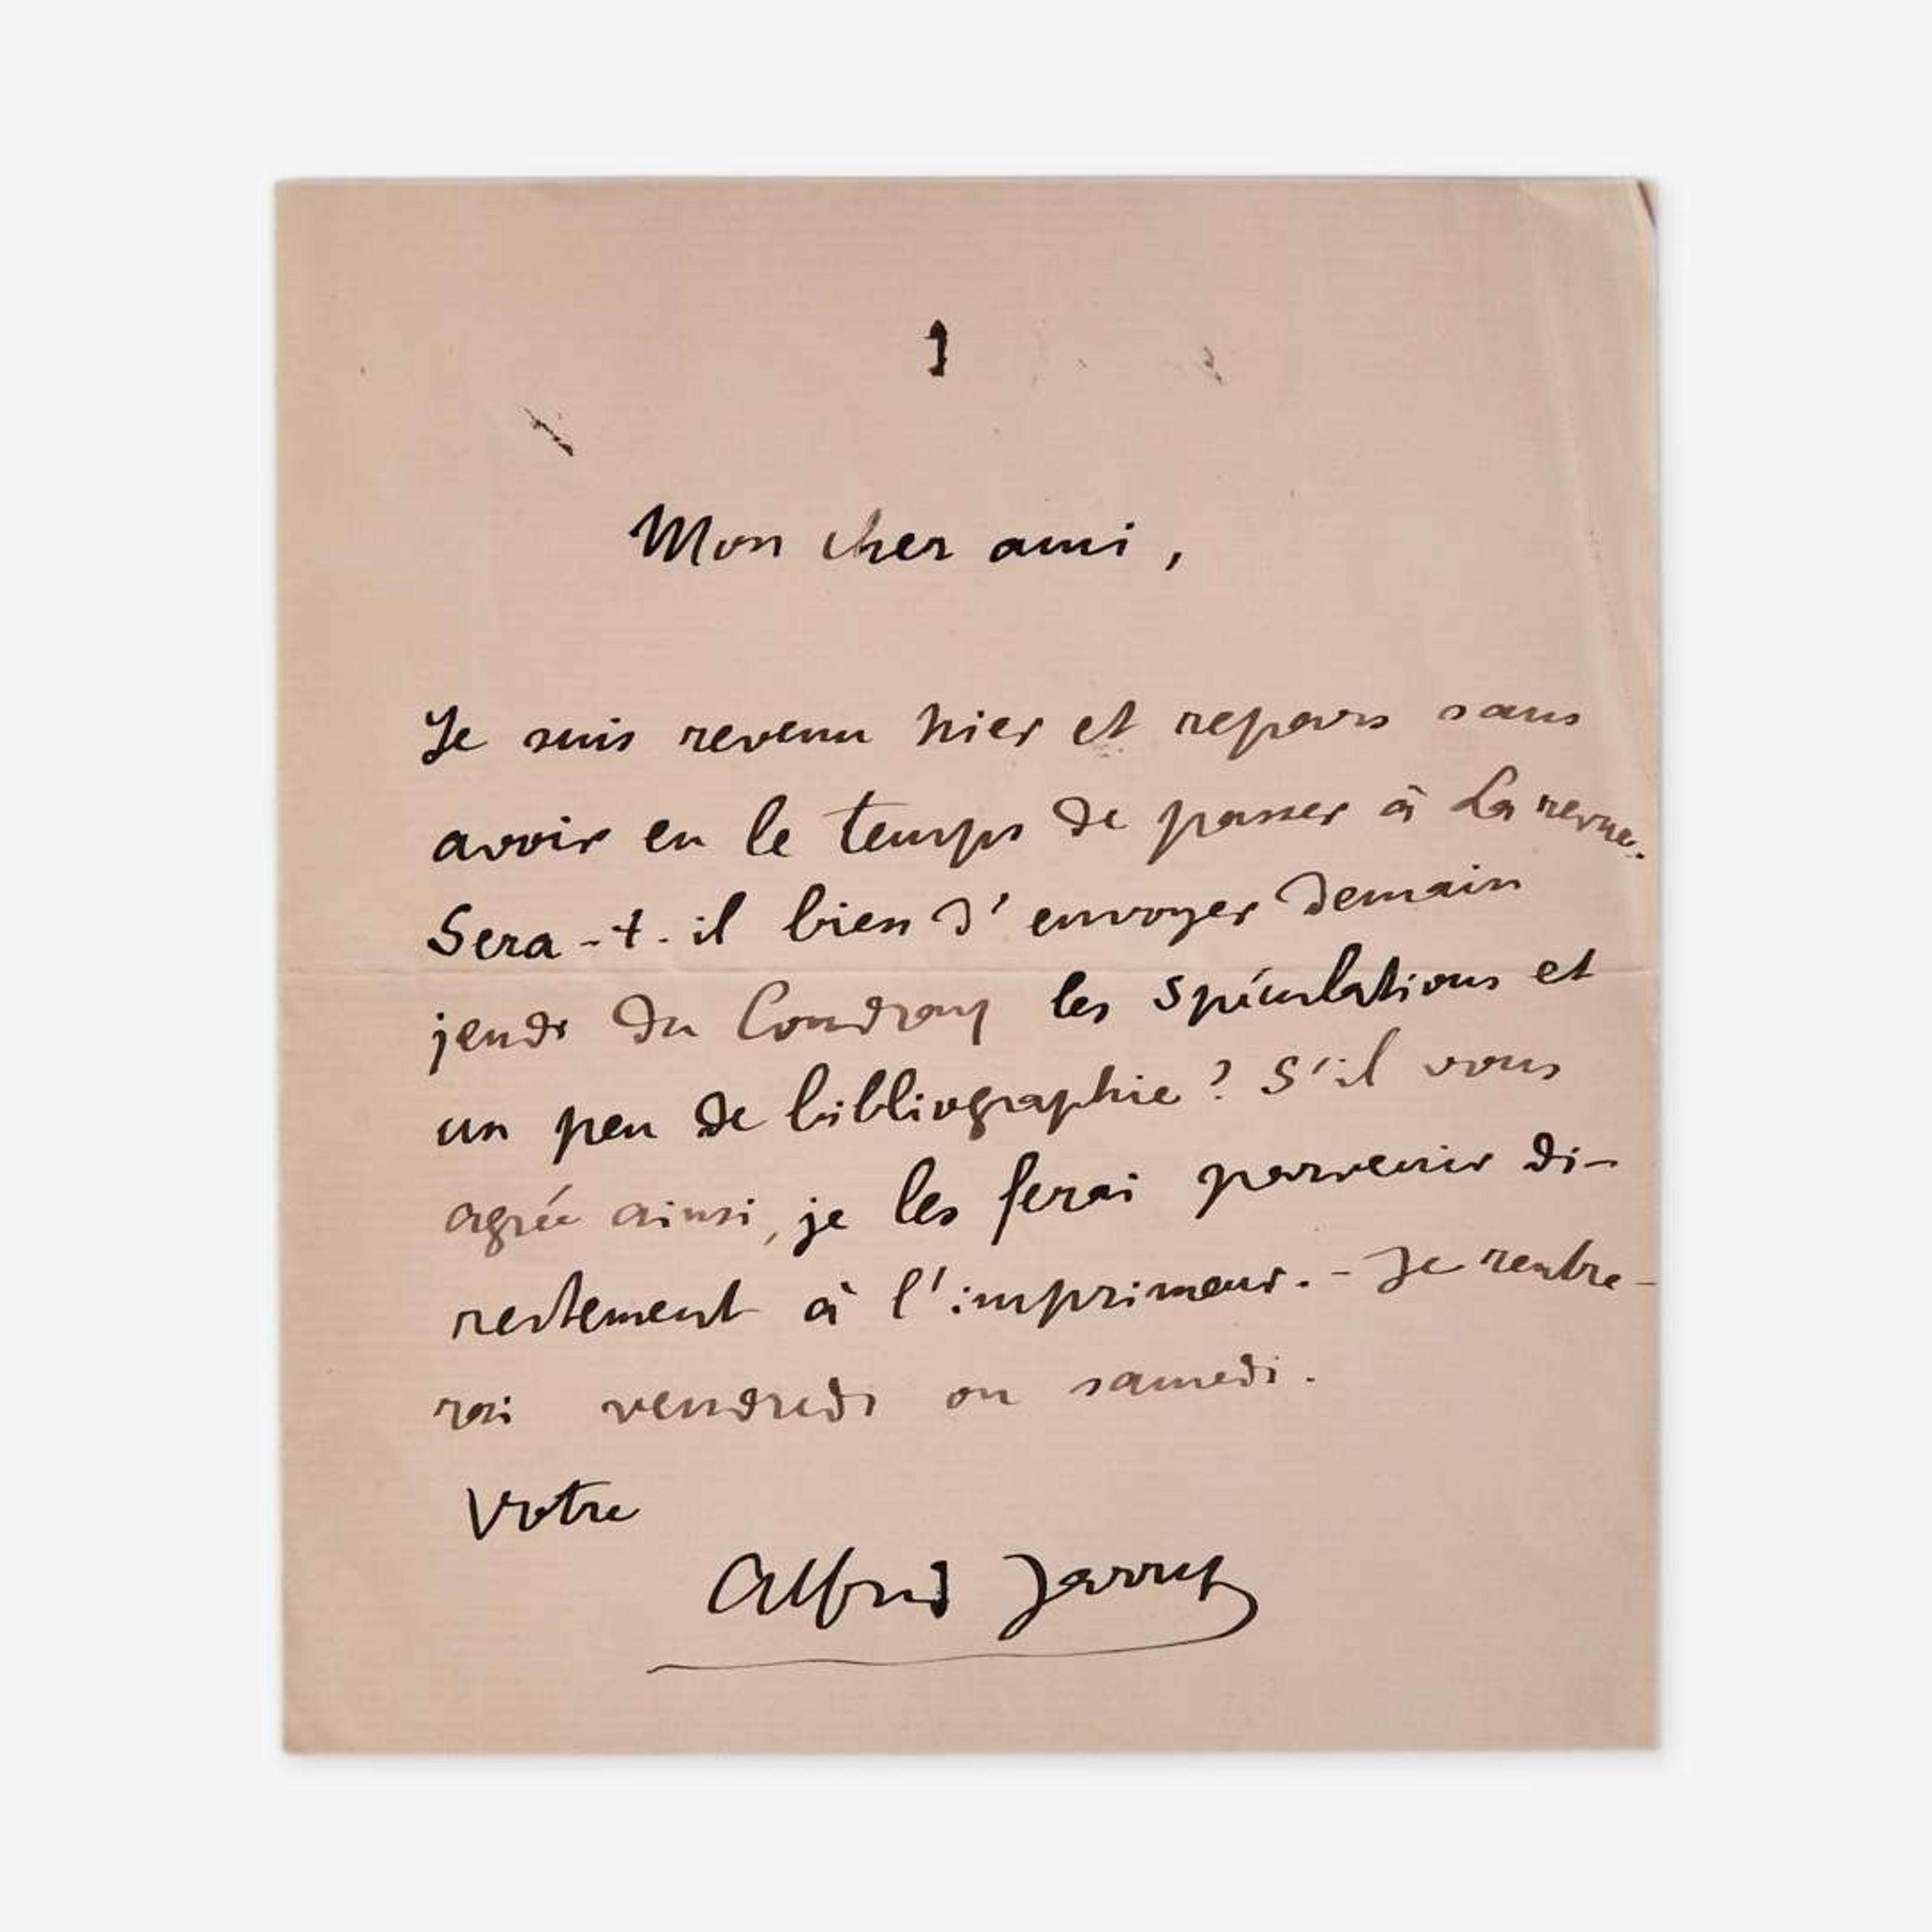 Mon cher ami,
Je suis revenu hier et repars sans
avoir eu le temps de passer à La revue.
Sera-t-il bien d'envoyer demain
jeudi du Coudray les Spéculations et
un peu de bibliographie ? S'il vous
agrée ainsi, je les ferai parvenir di-
rectement à l'imprimeur. - Je rentre-
rai vendredi ou samedi.
Votre
Alfred Jarry